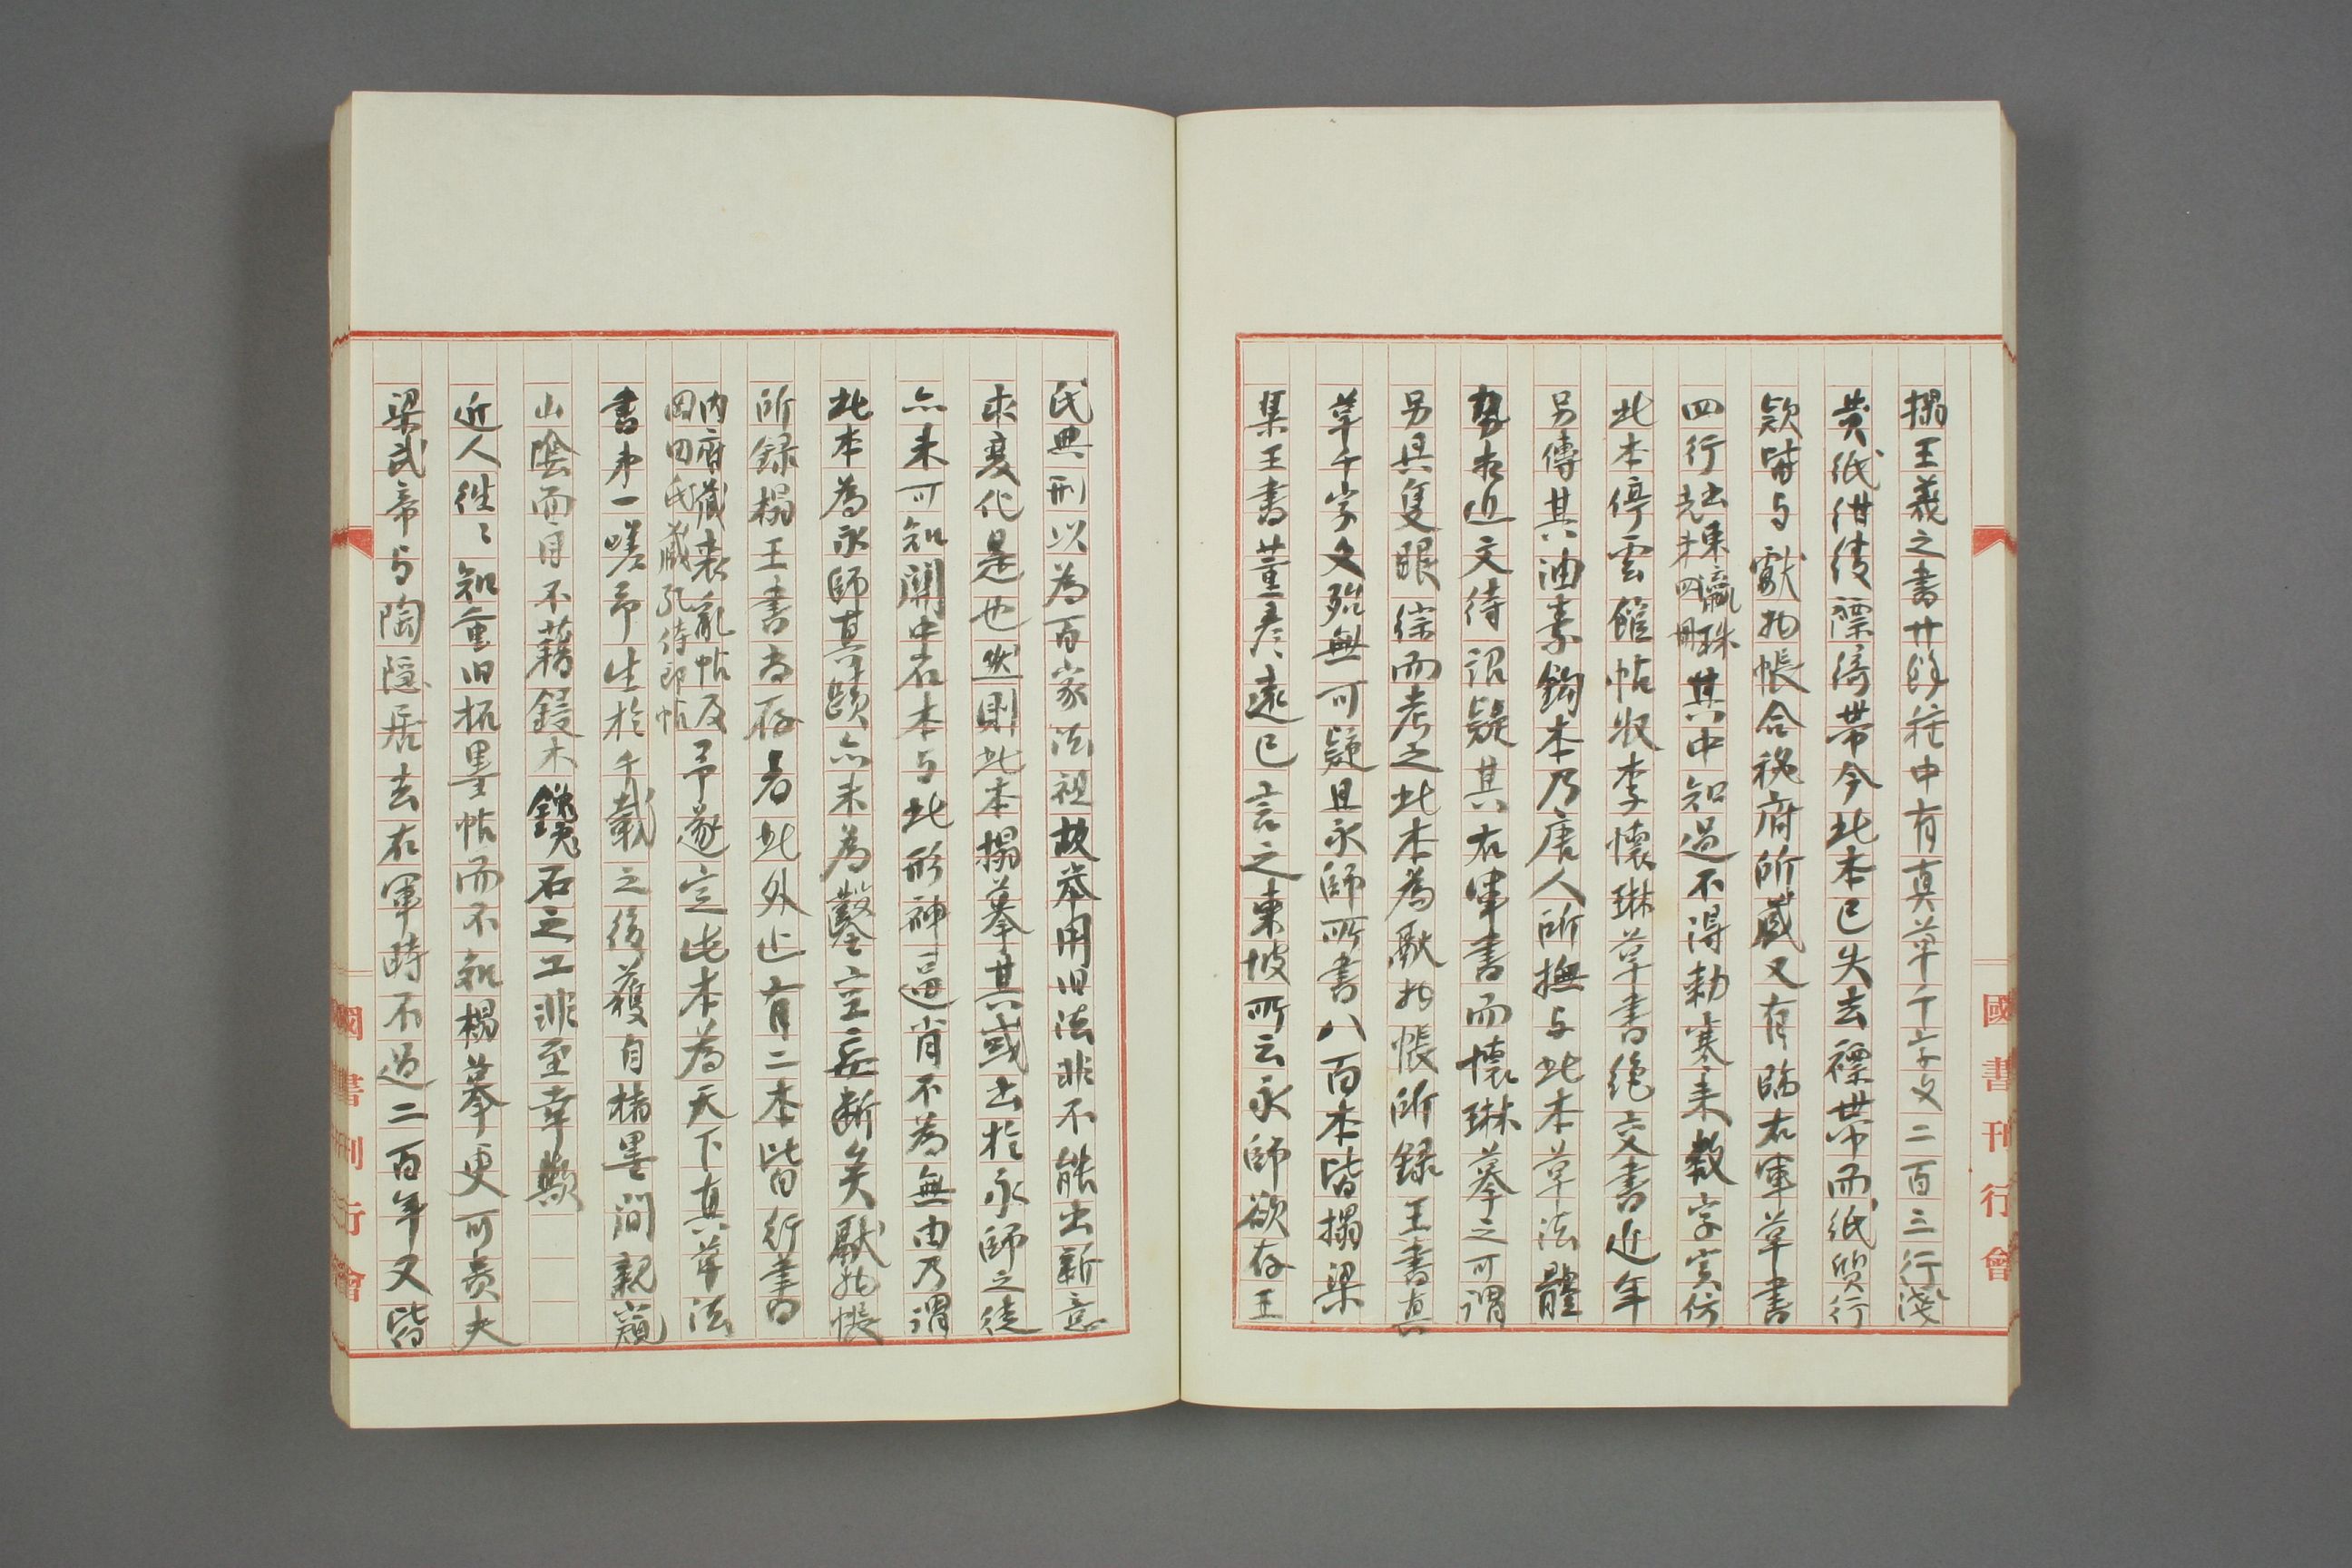 搨王羲之書廿餘粧中有真草千字文二百三行淺
黄紙紺綾褾綺帯今此本已失去褾帯而紙質行
款皆与獻物帳合秘府所藏又有臨右軍草書
四行其中知過不得勅寒来数字実仿
此本停雲館帖收李懐琳草書絶交書近年
另傳其油素鉤本乃唐人所撫与此本草法體
勢相近文待詔疑其右軍書而懐琳摹之可謂
另具隻眼綜而考之此本為獻物帳所録王書真
草千字文殆無可疑且永師所書八百本皆搨梁
集王書董彦遠已言之東坡所云永師欲存王
氏典刑以為百家法祖故举用旧法非不能出新意
求変化是也然則此本搨摹其或出於永師之徒
亦未可知関中石本与此形神逼肖不為無由乃謂
此本為永師真蹟亦未為鑿空妄断矣獻物帳
所録搨王書尚存者此外止有二本皆行草書
内府藏喪亂帖及
岡田氏藏孔侍郎帖
予遂定此本為天下真草法
書第一嗟予生於千載之後獲自楮墨間親窺
山陰而目不藉鋟木鐫石之工非至幸歟
近人往々知重旧拓墨帖而不知搨摹更可貴夫
梁武帝与陶隠居去右軍時不過二百年又皆
國書刊行會
國書刊行會